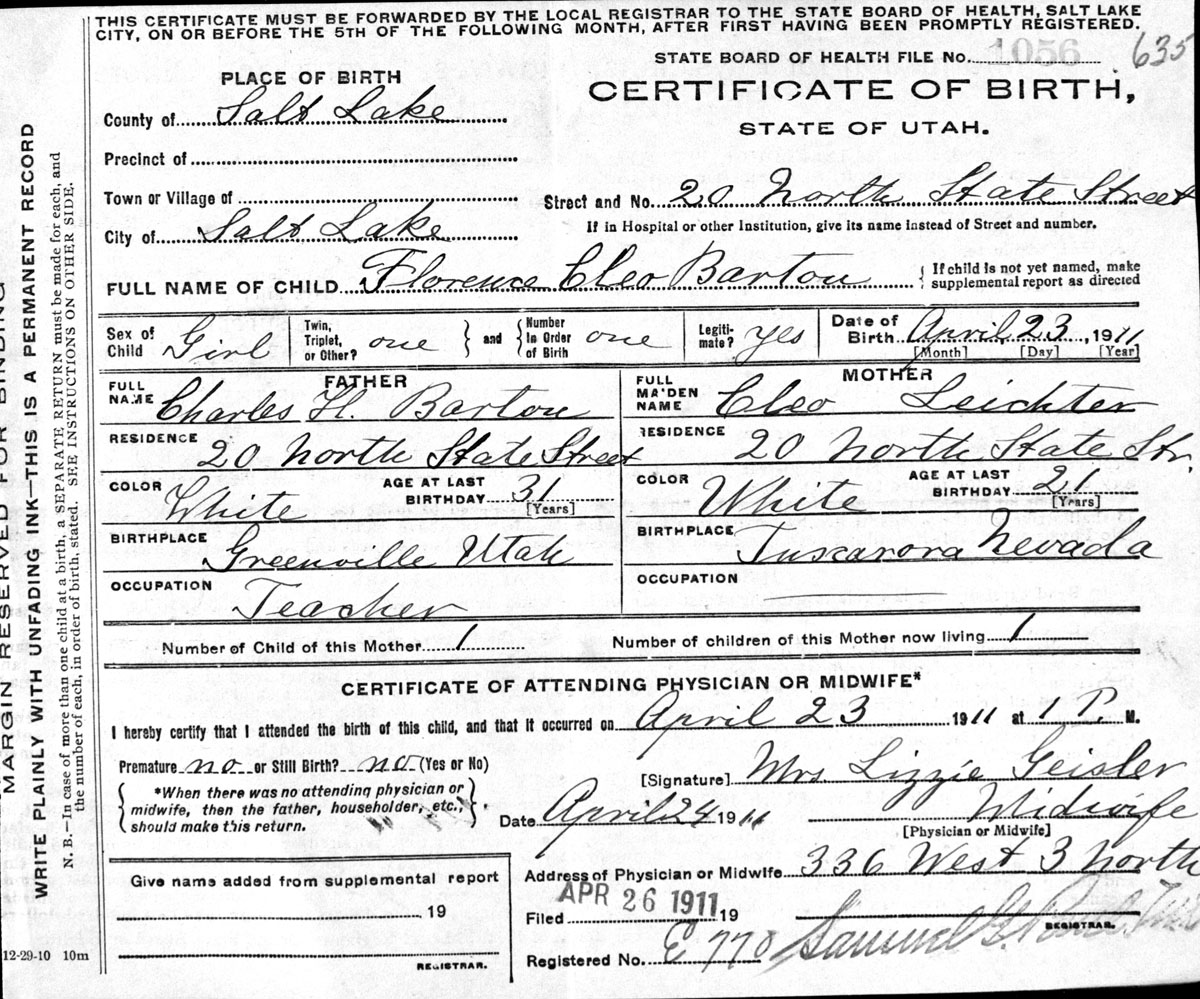 THIS CERTIFICATE MUST BE FORWARDED BY THE LOCAL REGISTRAR TO THE STATE BOARD OF HEALTH, SALT LAKE
CITY, ON OR BEFORE THE 5TH OF THE FOLLOWING MONTH, AFTER FIRST HAVING BEEN PROMPTLY REGISTERED.
STATE BOARD OF HEALTH FILE No. 1056 635
CERTIFICATE OF BIRTH,
STATE OF UTAH.
PLACE OF BIRTH
County of Salt Lake
Precinct of
Town or Village of
Street and No. 20 North State Street
City of Salt Lake
If in Hospital or other Institution, give its name instead of Street and number.
FULL NAME OF CHILD Florence Cleo Barton
{ If child is not yet named, make
supplemental report as directed
Sex of
Child Girl
Twin,
Triplet,
or Other? one } and { Number
In Order
of Birth one
Legiti-
mate? yes
Date of
Birth April 23, 1911
[Month] [Day] [Year]
FATHER
FULL
NAME Charles H. Barton
MOTHER
FULL
MAIDEN
NAME Cleo Leichter
RESIDENCE 20 North State Street
RESIDENCE 20 North State Str.
COLOR White
AGE AT LAST
BIRTHDAY 31
[Years]
COLOR White
AGE AT LAST
BIRTHDAY 21
[Years]
BIRTHPLACE Greenville Utah
BIRTHPLACE Tuscarora Nevada
OCCUPATION Teacher
OCCUPATION
Number of Child of this Mother 1
Number of children of this Mother now living 1
CERTIFICATE OF ATTENDING PHYSICIAN OR MIDWIFE*
I hereby certify that I attended the birth of this child, and that it occurred on April 23 1911 at 1 P. M.
Premature no or Still Birth? no (Yes or No)
[Signature] Mrs Lizzie Geisler
{ *When there was no attending physician or
midwife, then the father, householder, etc.,
should make this return. }
Date April 24 1911
Midwife
[Physician or Midwife]
Give name added from supplemental report
19
REGISTRAR.
Address of Physician or Midwife 336 West 3 North
Filed APR 26 1911 19
Samuel G.
REGISTRAR.
Registered No. E 770
12-29-10 10m
MARGIN RESERVED FOR BINDING
WRITE PLAINLY WITH UNFADING INK—THIS IS A PERMANENT RECORD
N. B.—In case of more than one child at a birth, a SEPARATE RETURN must be made for each, and
the number of each, in order of birth, stated. SEE INSTRUCTIONS ON OTHER SIDE.